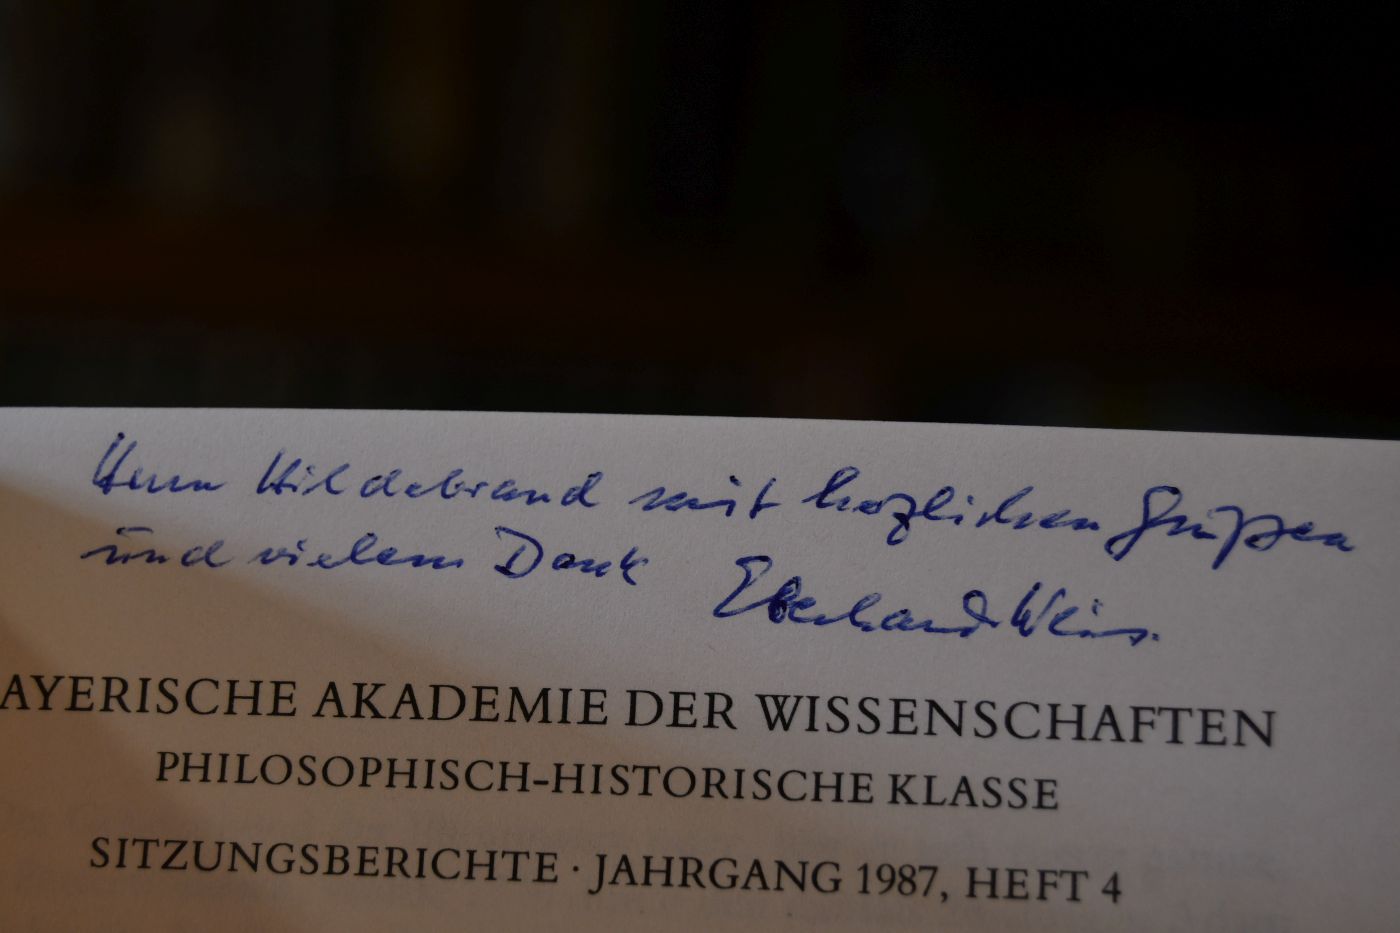 Herrn Hildebrand mit herzlichen Grüßen
und vielem Dank Eberhard Weis.
AYERISCHE AKADEMIE DER WISSENSCHAFTEN
PHILOSOPHISCH-HISTORISCHE KLASSE
SITZUNGSBERICHTE · JAHRGANG 1987, HEFT 4